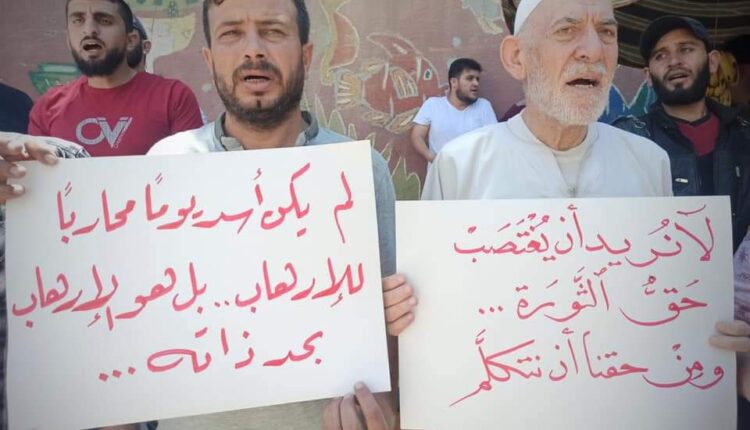 لم يكن أسد يومًا محاربًا
للإرهاب .. بل هو الإرهاب
بحد ذاته ...
لَا نُريد أن يُغْتَصَبْ
حَقُّ الثَّوْرَة ...
ومِنْ حقنا أن نتكلَّم